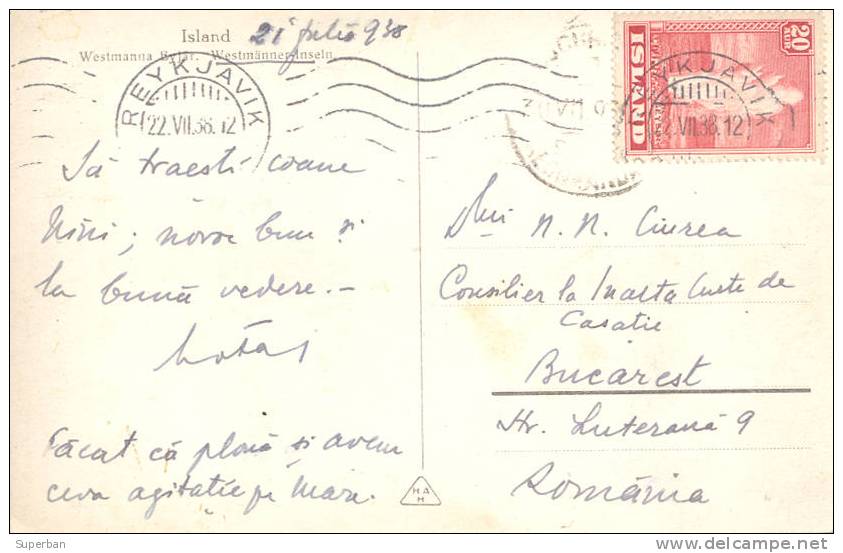 Island
21 julie 938
Westmanna Eyjar. Westmänner-Inseln
REYKJAVIK
22.VII.38.12
ISLAND
20
AUR
REYKJAVIK
22.VII.38.12
Să traesti coane
Nini; noroc bun și
la bună vedere.-
Făcat că plouă și avem
ceva agitatie pe Mare.
Dlui N. N. Ciurea
Consilier la Inalta Curte de
Casatie
Bucarest
Str. Luterană 9
România
HAH
© Superban
delcampe.net